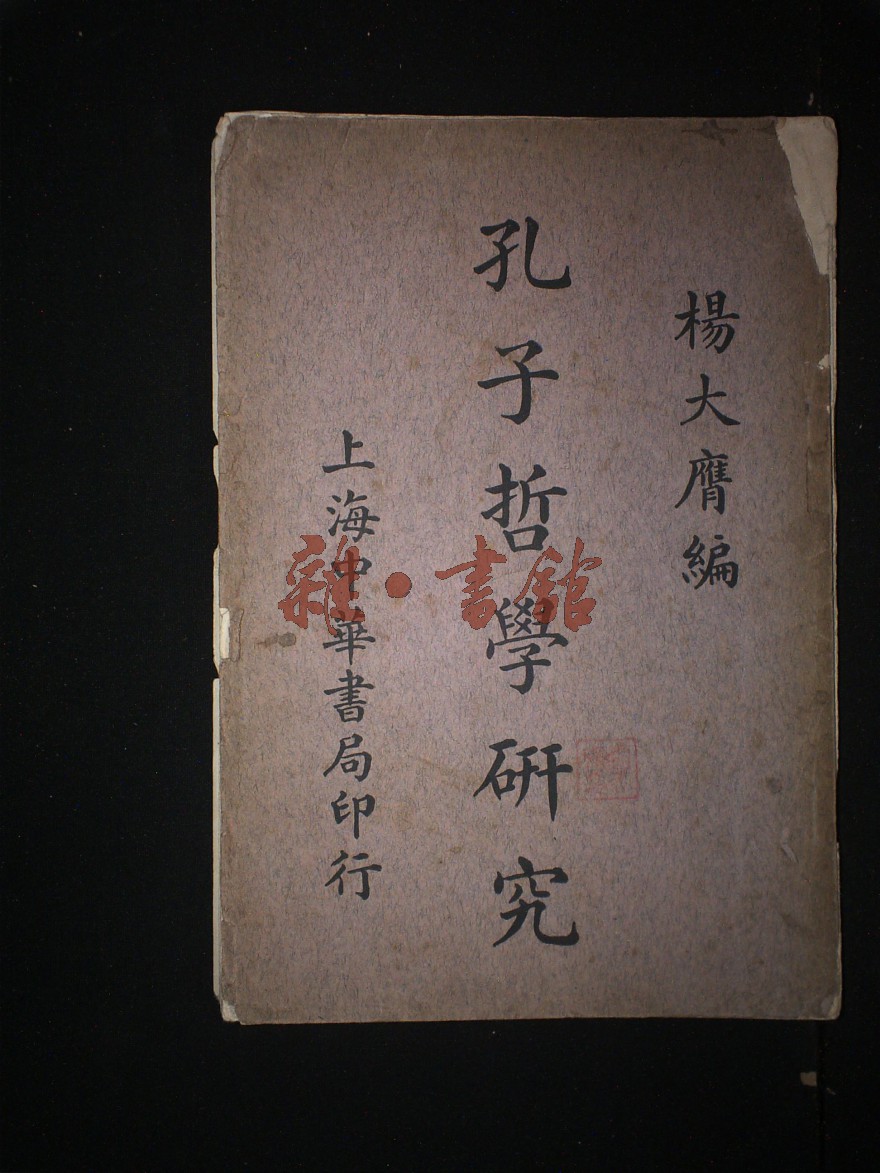 楊大膺編
孔子哲學研究
上海中華書局印行
雜·書館